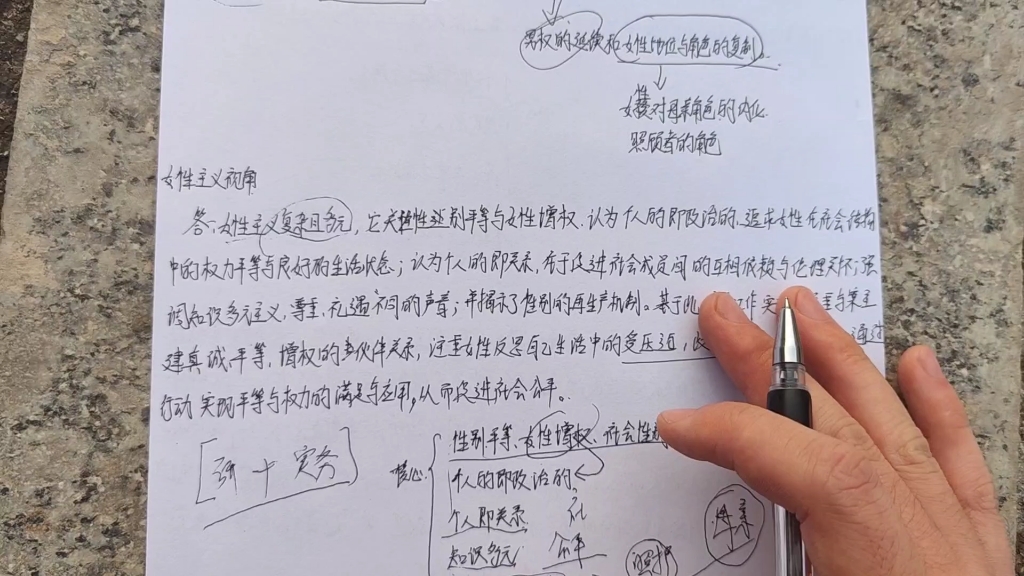 男权的延续和女性地位与角色的复制
女孩对母亲角色的内化
照顾者的角色
女性主义视角
答:女性主义复杂且多元,它关注性别平等与女性增权.认为个人的即政治的.追求女性在社会结构
中的权力平等与良好的生活状态;认为个人的即关系,在于促进社会成员间的互相依赖与伦理关怀;强
调知识多元主义,尊重、礼遇不同的声音;并揭示了性别的再生产机制。基于此 工作 实 重 与案主
建真诚、平等、增权的 伙伴关系,注重女性反思自己生活中的受压迫, 通过
行动实现平等与权力的满足与应用,从而促进社会公平。
[ 评 + 实务]
核心 { 性别平等、女性增权、社会性
个人的即政治的
个人即关系
知识多元